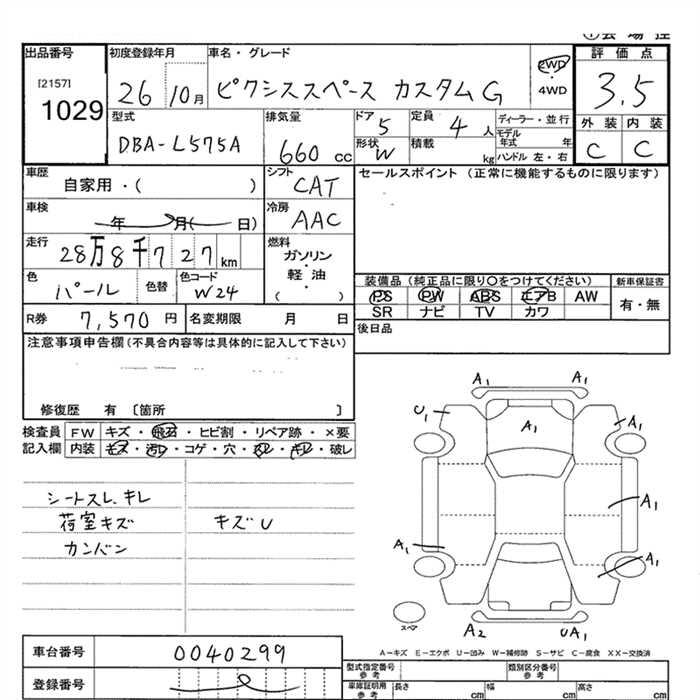 出品番号 初度登録年月 車名・グレード 評価点
[2157] 1029 26 10月 ピクシススペース カスタムG 2WD・4WD 3.5
型式 排気量 ドア 定員 ディーラー・並行 外装 内装
DBA-L575A 660cc 5 4人 モデル年式 年 C C
形状 W 積載 kg ハンドル 左・右
車歴 自家用・( ) シフト CAT セールスポイント (正常に機能するものに限ります)
車検 年 月( 日) 冷房 AAC
走行 28万8千727km 燃料 ガソリン・軽油・( )
色 パール 色替 色コード W24 装備品(純正品に限り〇をつけてください) 新車保証書
PS PW ABS エアB AW 有・無
SR ナビ TV カワ
R券 7,570円 名変期限 月 日 後日品
注意事項申告欄(不具合内容等は具体的に記入して下さい)
修復歴 有 [箇所 ]
検査員 FW キズ・飛石・ヒビ割・リペア跡・×要
記入欄 内装 キズ・汚レ・コゲ・穴・・キレ・破レ
シートスレ、キレ
荷室キズ キズU
カンバン
A1 A1
U1 A1 A1
A1
A1 A1
スペア A2 UA1
A-キズ E-エクボ U-凹み W-補修跡 S-サビ C-腐食 XX-交換済
車台番号 0040299 型式指定番号 参考 類別区分番号 参考
登録番号 車庫証明用 参考 長さ cm 幅 cm 高さ cm